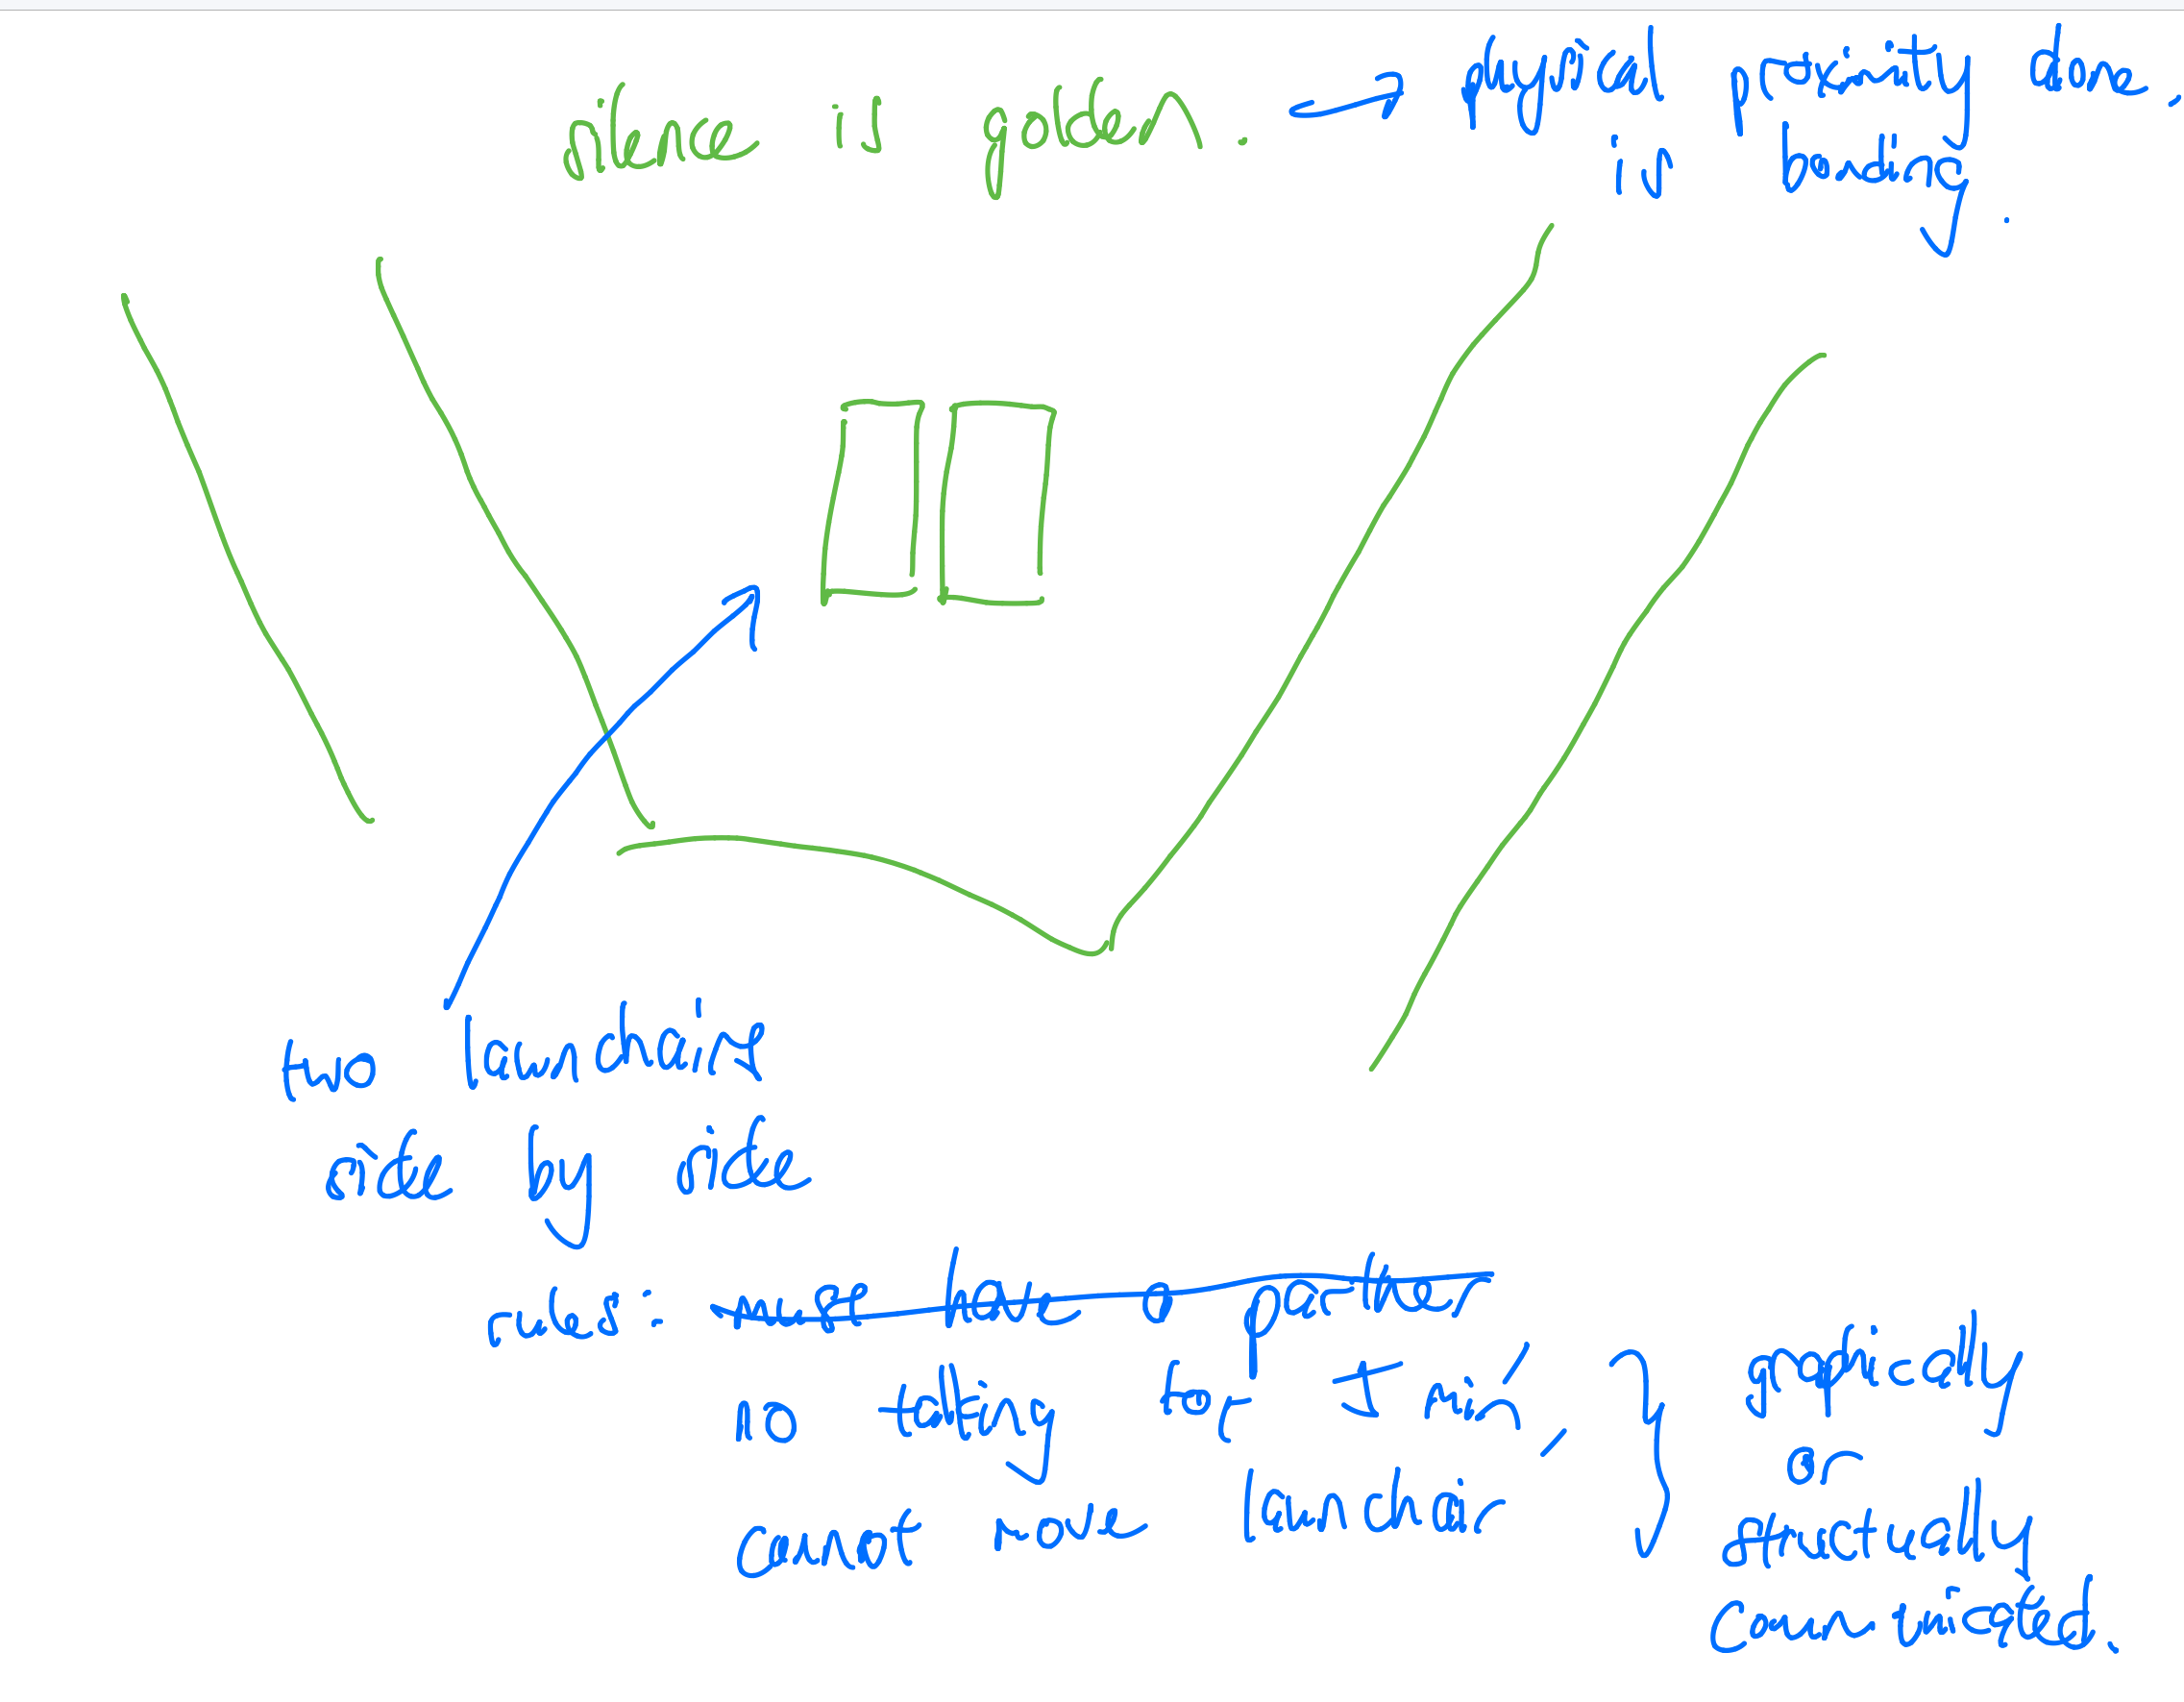 silence is golden. → physical proximity alone,
is bonding.
two lawnchairs
side by side
rules: must have a partner
no talking for I min,
cannot move lawnchair
graphically
or
structually
communicated.